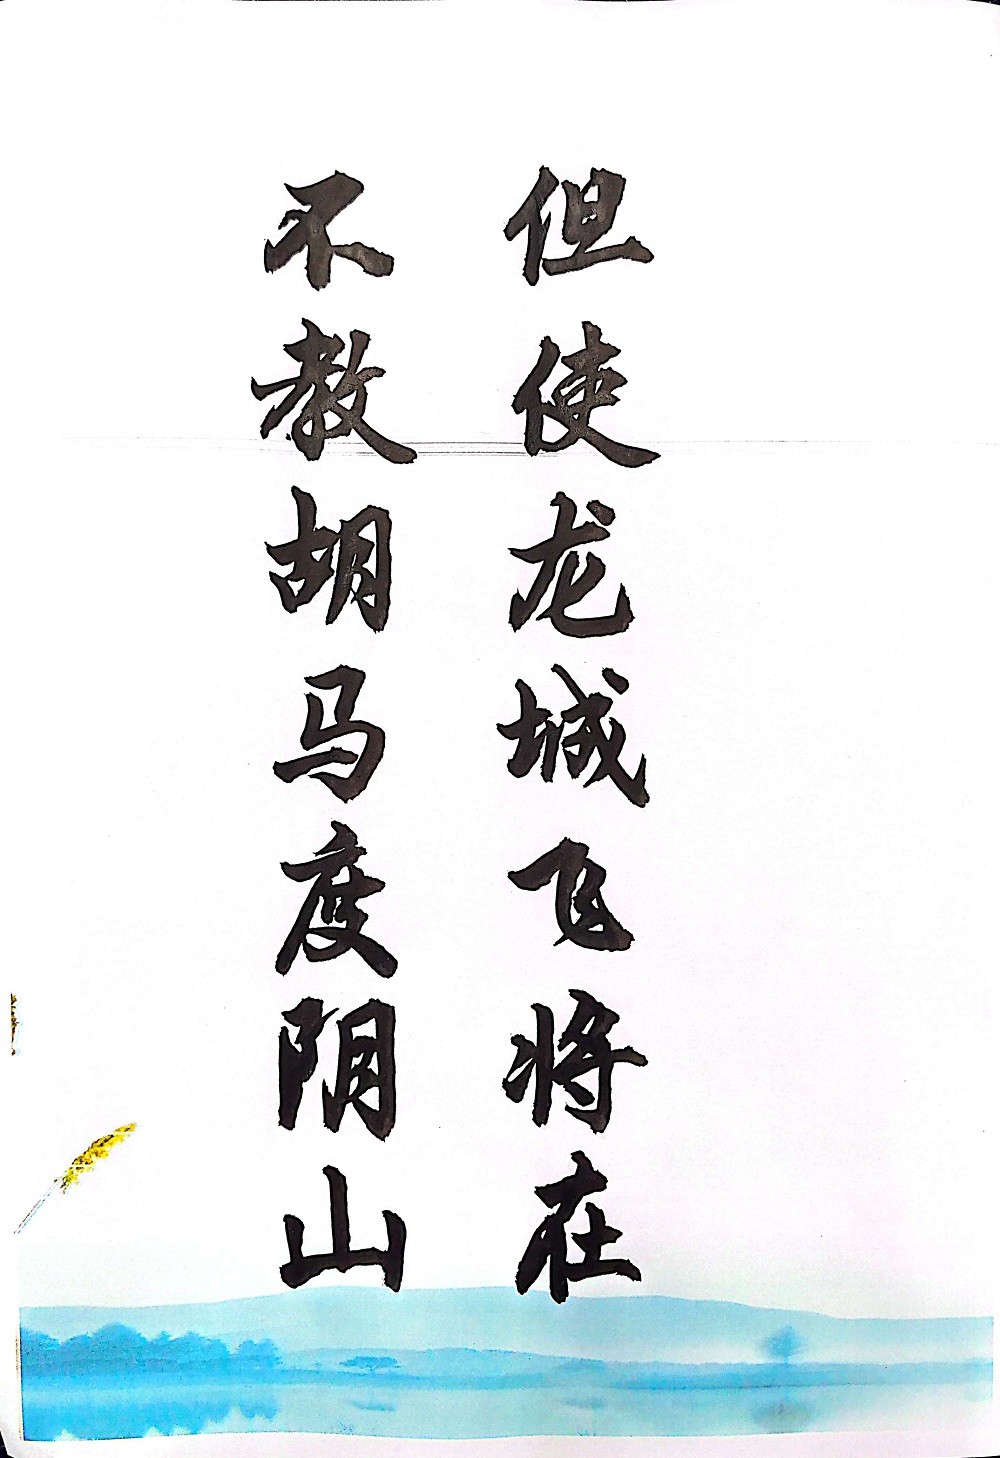 但使龙城飞将在
不教胡马度阴山